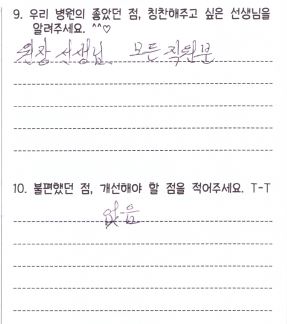 9. 우리 병원의 좋았던 점, 칭찬해주고 싶은 선생님을
알려주세요. ^^♡
원장 선생님, 모든 직원분
10. 불편했던 점, 개선해야 할 점을 적어주세요. T-T
없음